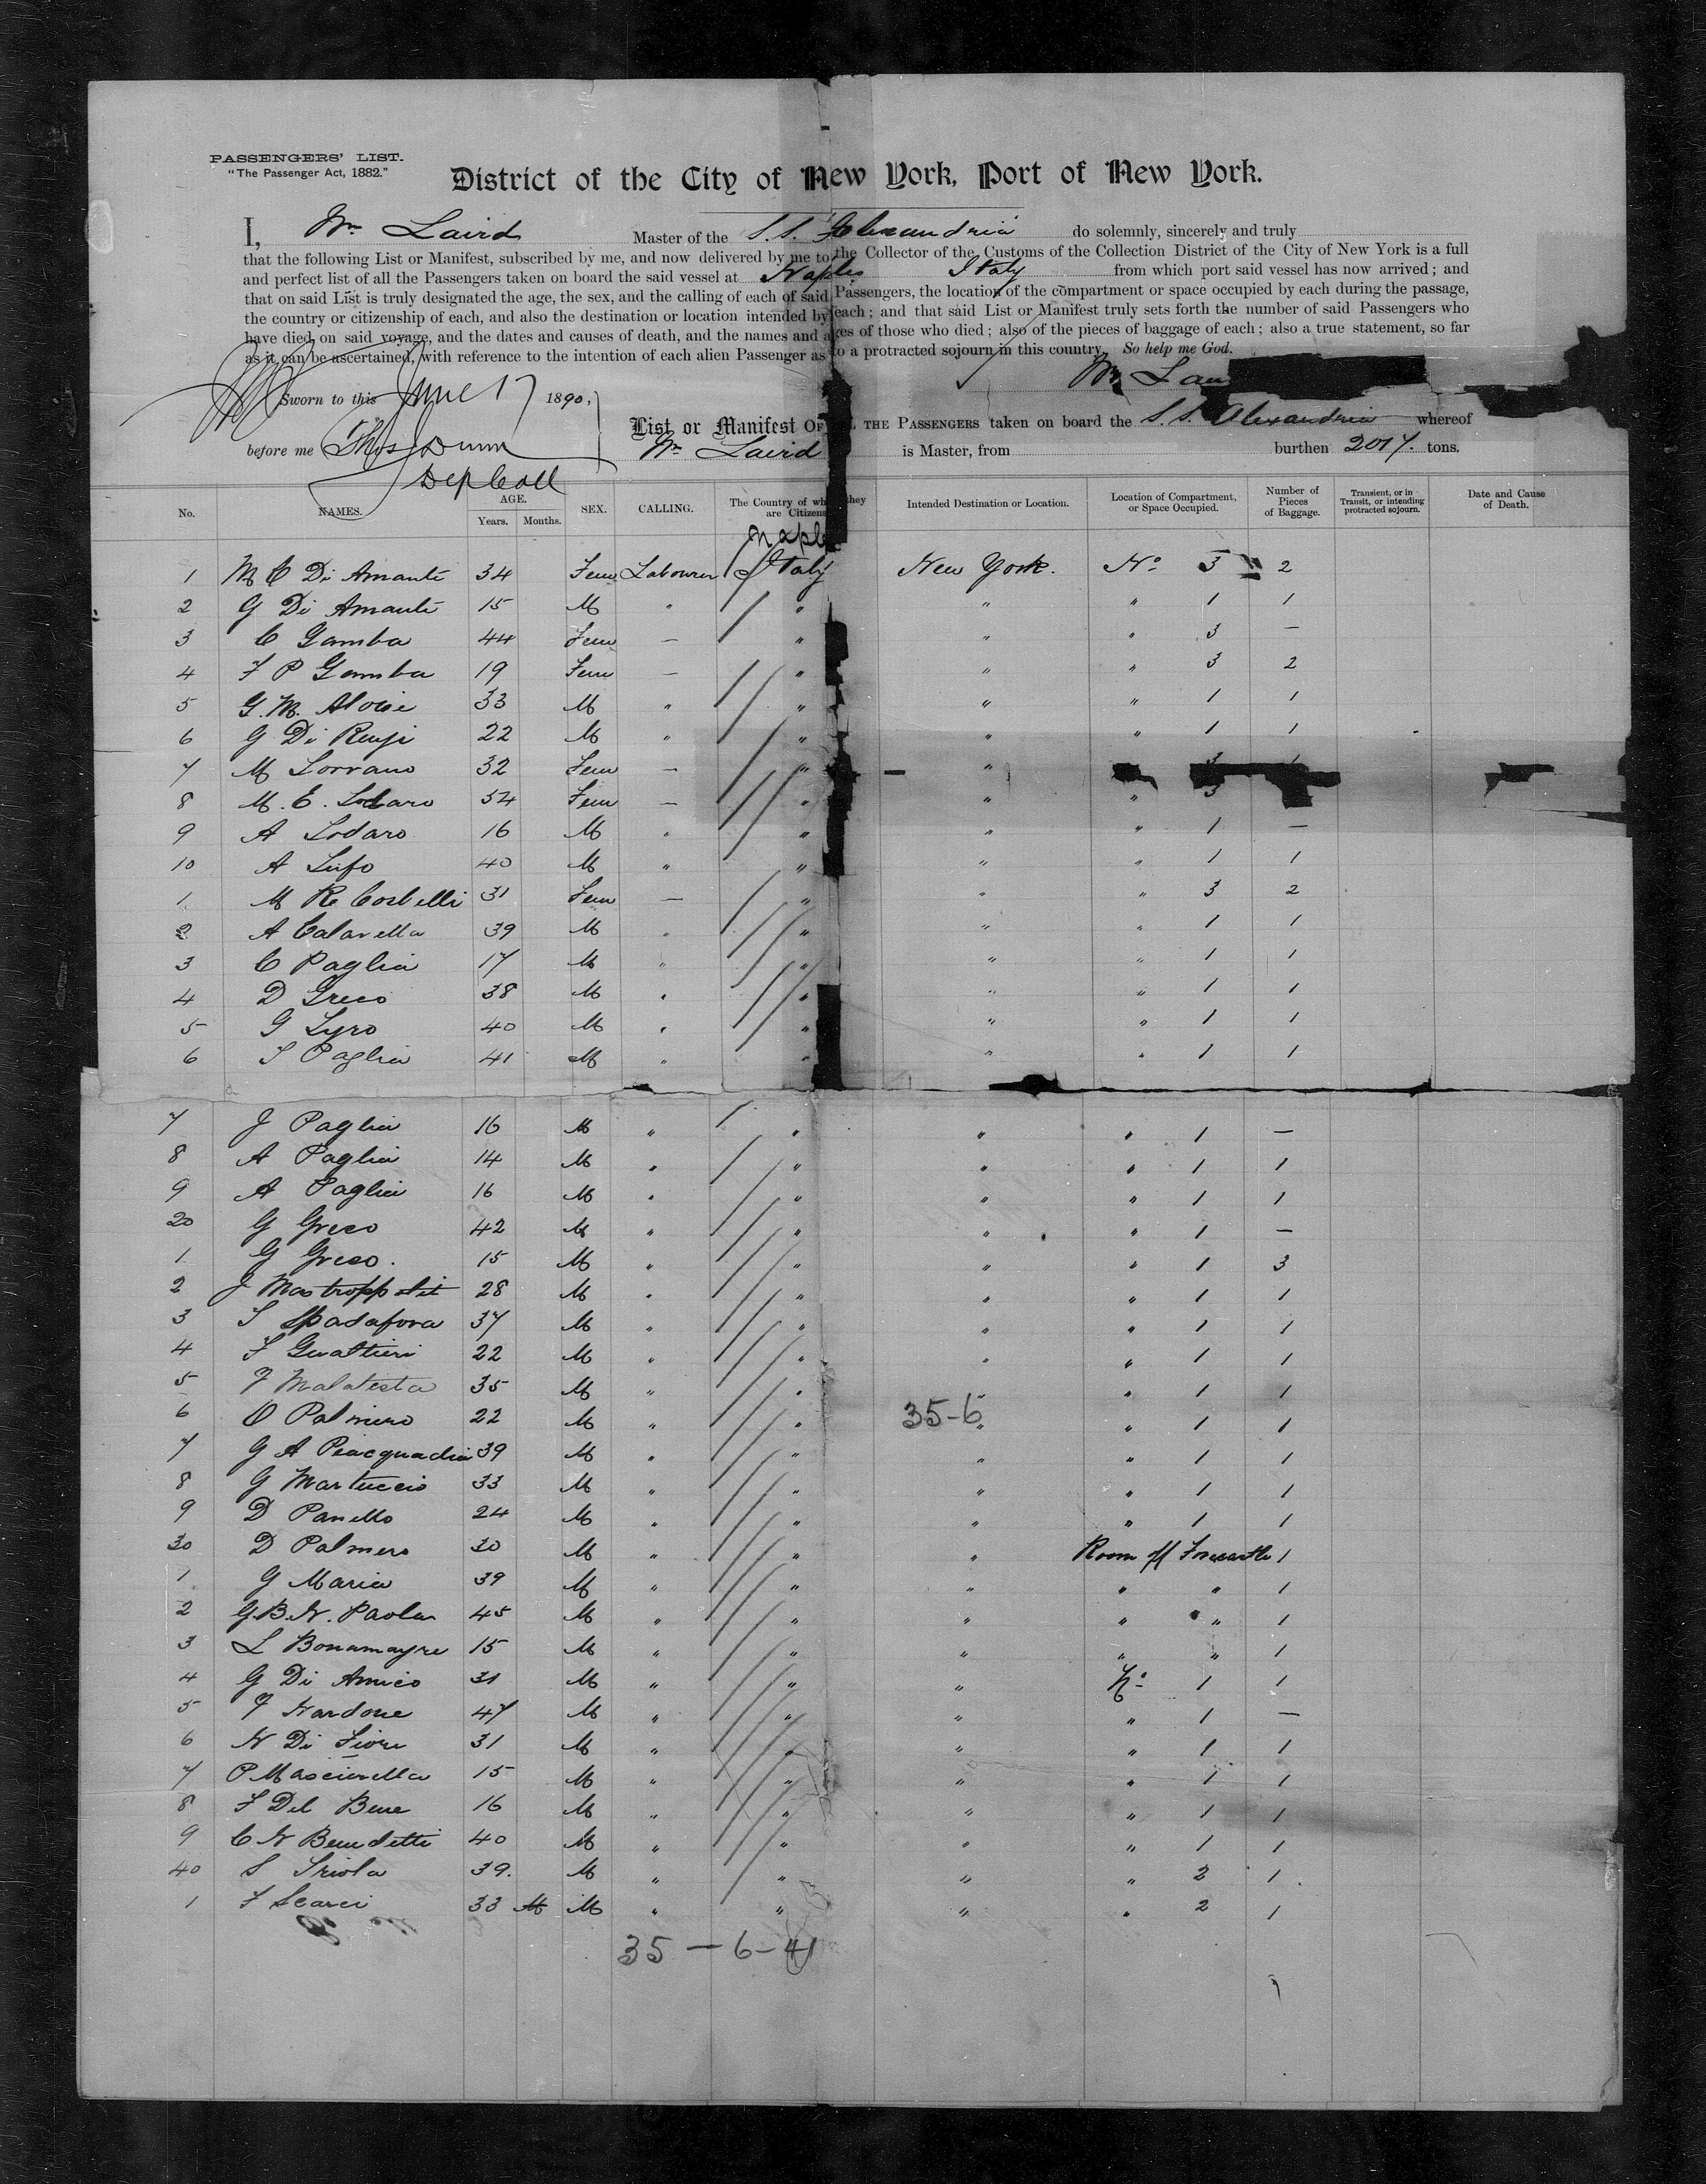 PASSENGERS' LIST.
"The Passenger Act, 1882."
District of the City of New York, Port of New York.
I, Wm Laird Master of the S.S. Alexandria do solemnly, sincerely and truly
that the following List or Manifest, subscribed by me, and now delivered by me to the Collector of the Customs of the Collection District of the City of New York is a full
and perfect list of all the Passengers taken on board the said vessel at Naples Italy from which port said vessel has now arrived; and
that on said List is truly designated the age, the sex, and the calling of each of said Passengers, the location of the compartment or space occupied by each during the passage,
the country or citizenship of each, and also the destination or location intended by each; and that said List or Manifest truly sets forth the number of said Passengers who
have died on said voyage, and the dates and causes of death, and the names and ages of those who died; also of the pieces of baggage of each; also a true statement, so far
as it can be ascertained, with reference to the intention of each alien Passenger as to a protracted sojourn in this country. So help me God.
Wm
Sworn to this June 17 1890,
before me Thos Dunn
Dep Coll
List or Manifest OF THE PASSENGERS taken on board the S.S. Alexandria whereof
Wm Laird is Master, from burthen 2017. tons.
No. NAMES. AGE. Years. Months. SEX. CALLING. The Country of which they are Citizens Intended Destination or Location. Location of Compartment, or Space Occupied. Number of Pieces of Baggage. Transient, or in Transit, or intending protracted sojourn. Date and Cause of Death.
1 M C Di Amanti 34 Fem Labourer Italy New York. No 3 2
2 G Di Amanti 15 M " " " " 1 1
3 C Gamba 44 Fem — " " " 3 —
4 F P Gamba 19 Fem — " " " 3 2
5 G. M. Aloise 33 M " " " " 1 1
6 G Di Renzi 22 M " " " " 1 1
7 M Lorrano 32 Fem — " " 3 1
8 M. E. Lodaro 34 Fem — " " " 3
9 A Lodaro 16 M " " " " 1 —
10 A Lufo 40 M " " " " 1 1
1 M R Costelli 31 Fem — " " " 3 2
2 A Calavella 39 M " " " " 1 1
3 C Paglia 17 M " " " " 1 1
4 D Greco 38 M " " " " 1 1
5 G Lyro 40 M " " " " 1 1
6 S Paglia 41 M " " " " 1 1
7 J Paglia 16 M " " " " 1 —
8 A Paglia 14 M " " " " 1 1
9 A Paglia 16 M " " " " 1 1
20 G Greco 42 M " " " " 1 —
1 G Greco. 15 M " " " " 1 3
2 J Mastroppolit 28 M " " " " 1 1
3 S Spadafora 37 M " " " " 1 1
4 F Gualtieri 22 M " " " " 1 1
5 F Malatesta 35 M " " " " 1 1
6 O Palmiero 22 M " " 35-6 " " 1 1
7 G A Piacquadia 39 M " " " " 1 1
8 G Martuccio 33 M " " " " 1 1
9 D Panello 24 M " " " " 1 1
30 D Palmero 30 M " " " Room off Forecastle 1
1 G Maria 39 M " " " " " 1
2 G. B. N. Paola 45 M " " " " " 1
3 L Bonamayre 15 M " " " " " 1
4 G Di Amico 31 M " " " No 1 1
5 F Nardone 47 M " " " " 1 —
6 N Di Fiore 31 M " " " " 1 1
7 P Masciarella 15 M " " " " 1 1
8 F Del Bene 16 M " " " " 1 1
9 C N Benedetti 40 M " " " " 1 1
40 S Triola 39. M " " " " 2 1.
1 F Scarci 33 M M " " " " 2 1
35 — 6 — 41